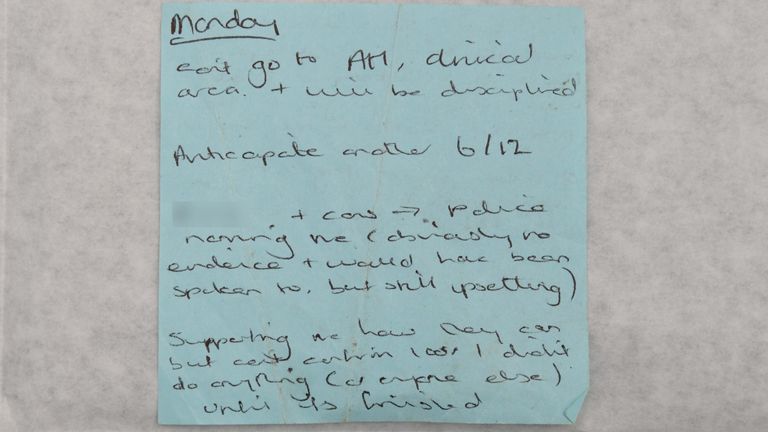 Monday
can't go to AH, clinical
area. + will be disciplined
Anticapate another 6/12
+ cons → police
naming me (obviously no
evidence + would have been
spoken to, but still upsetting)
Supporting me how they can
but can't confirm 100% I didn't
do anything (or anyone else)
until its finished